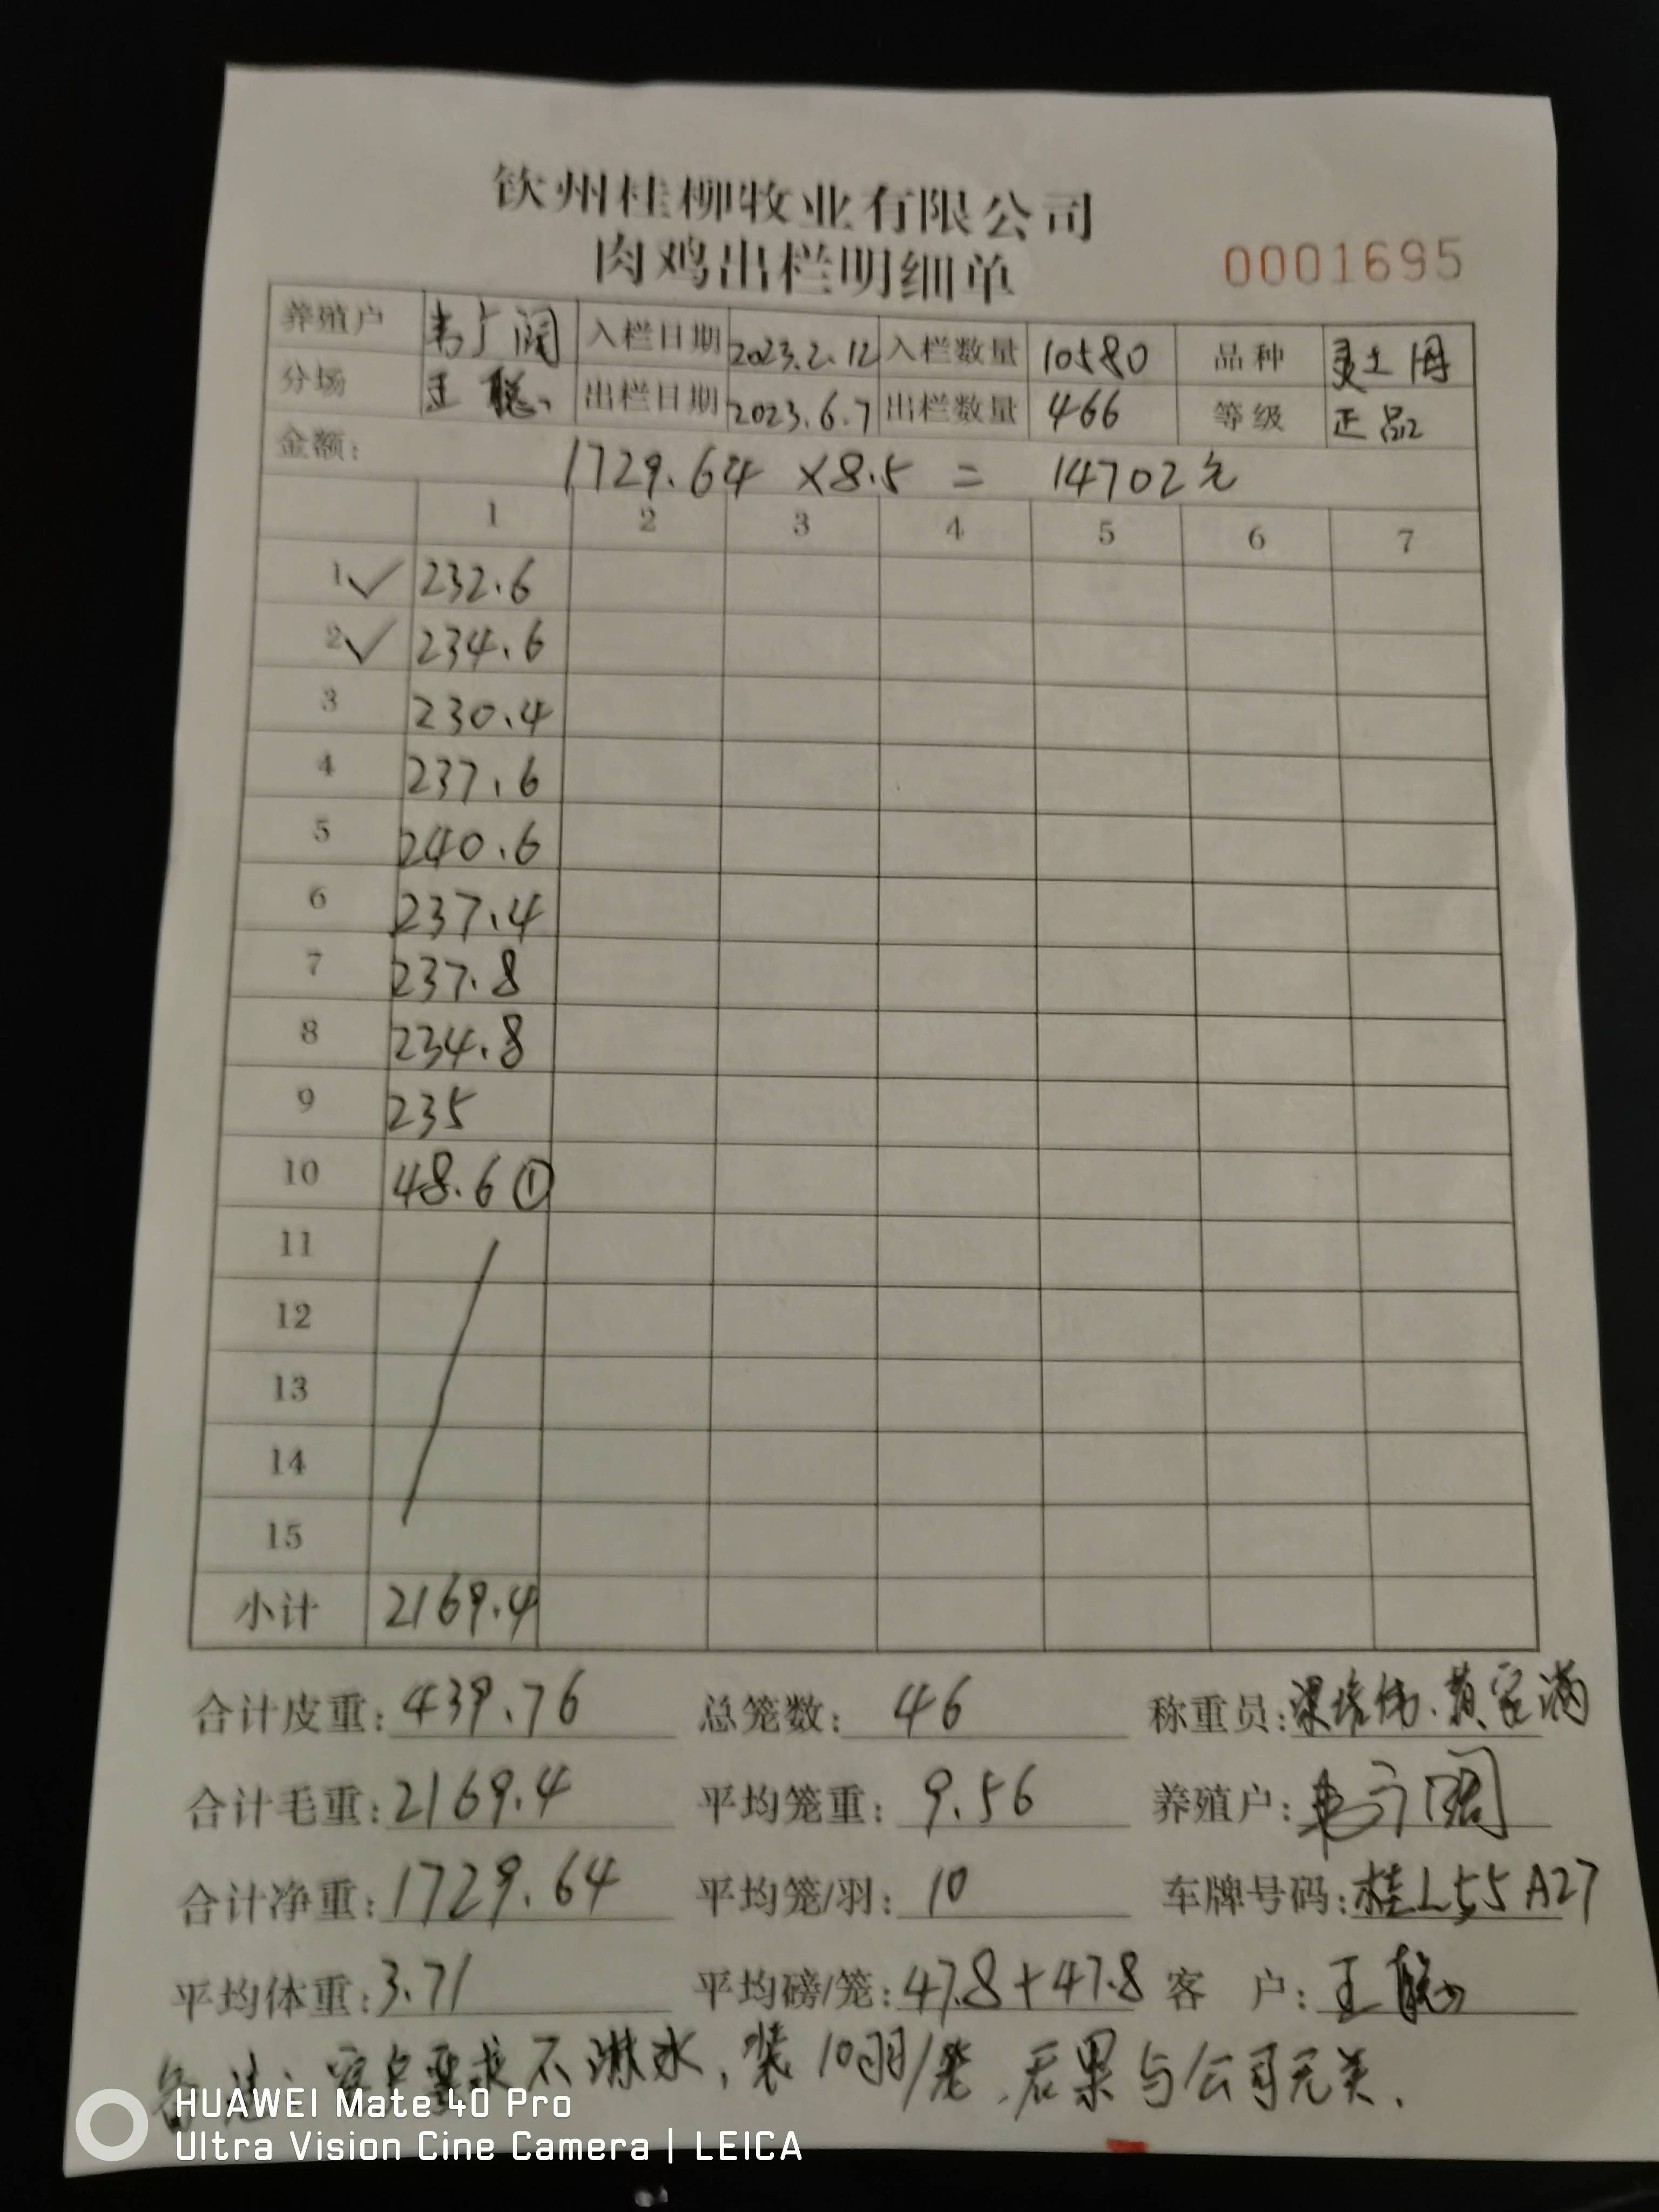 钦州桂柳牧业有限公司
肉鸡出栏明细单
0001695
养殖户 韦广阔 入栏日期 2023.2.12 入栏数量 10580 品种 灵土母
分场 王聪 出栏日期 2023.6.7 出栏数量 466 等级 正品
金额: 1729.64 ×8.5 = 14702元
1 2 3 4 5 6 7
1✓ 232.6
2✓ 234.6
3 230.4
4 237.6
5 240.6
6 237.4
7 237.8
8 234.8
9 235
10 48.6 ①
11
12
13
14
15
小计 2169.4
合计皮重: 439.76 总笼数: 46 称重员:
合计毛重: 2169.4 平均笼重: 9.56 养殖户: 韦广阔
合计净重: 1729.64 平均笼/羽: 10 车牌号码: 桂L55A27
平均体重: 3.71 平均磅/笼: 47.8+47.8 客 户: 王聪
备注: 客户要求不淋水, 装10羽/笼, 后果与公司无关.
HUAWEI Mate 40 Pro
Ultra Vision Cine Camera | LEICA